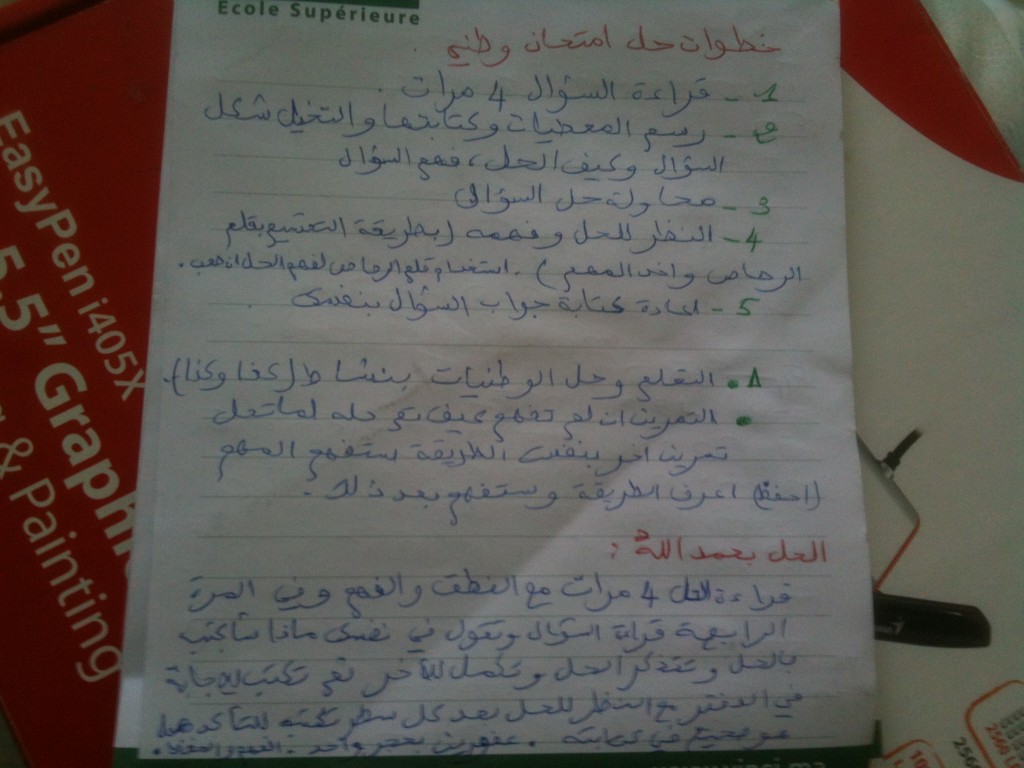 Ecole Supérieure
خطوات حل امتحان وطني
1 - قراءة السؤال 4 مرات .
2 - رسم المعطيات وكتابتها والتخيل شكل
السؤال وكيف الحل، فهم السؤال
3 - محاولة حل السؤال
4 - النظر للحل وفهمه (بطريقة التتبع بقلم
الرصاص واخد المهم) . استخدام قلم الرصاص لفهم الحل
5 - إعادة كتابة جواب السؤال بنفسي .
وحل الوطنيات بنشاط (كفا وكفا).
التمرين ان لم تفهم كيف تم حله
تمرين اخر بنفس الطريقة ستفهم المهم
(احفظ) اعرف الطريقة وستفهم بعد ذلك .
الحل بحمد الله :
قراءة الحل 4 مرات مع النطق والفهم وفي المرة
الرابعة قراءة السؤال وتقول في نفسك ماذا سأكتب
بالحل وتتذكر الحل وتكمل للآخر ثم تكتب الإجابة
في الدفتر مع النظر للحل بعد كل سطر تكتبه للتأكد هل
هو صحيح في كتابته . عصفورين بحجر واحد . الفهم والحفظ .
EasyPen i405X
5.5" Graphi
& Painting